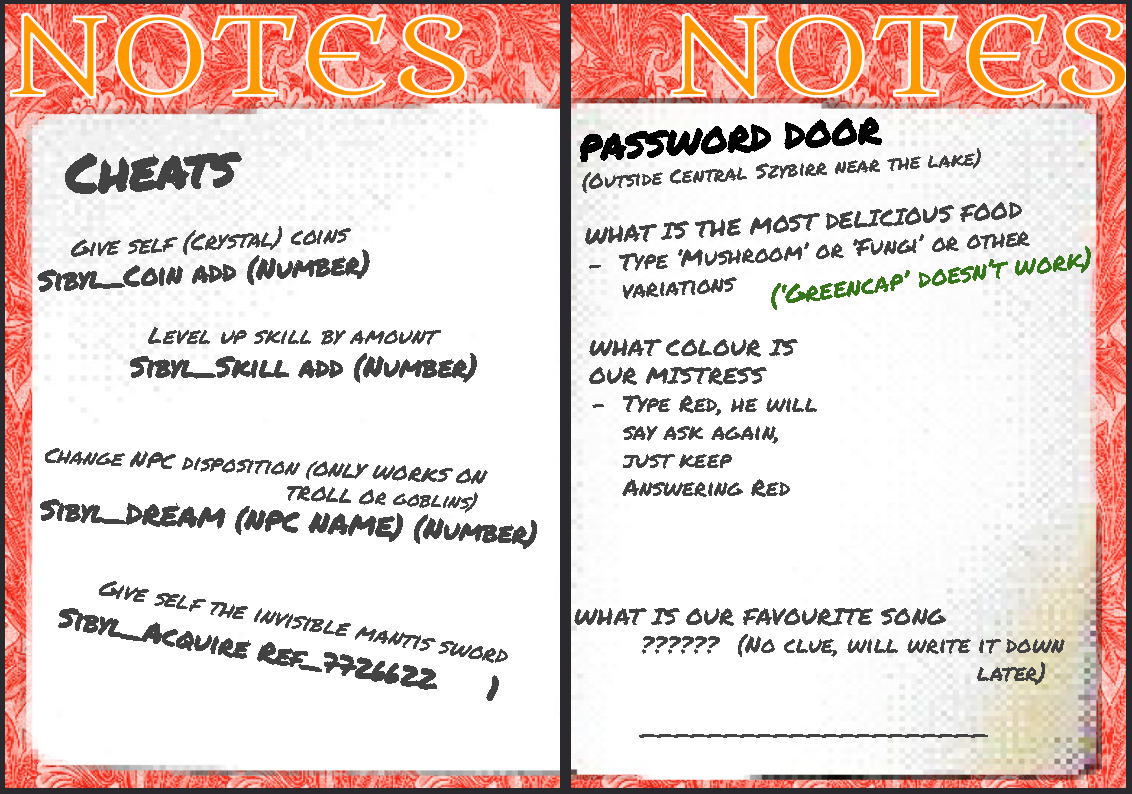 NOTES
CHEATS
GIVE SELF (CRYSTAL) COINS
SIBYL_COIN ADD (NUMBER)
LEVEL UP SKILL BY AMOUNT
SIBYL_SKILL ADD (NUMBER)
CHANGE NPC DISPOSITION (ONLY WORKS ON
TROLL OR GOBLINS)
SIBYL_DREAM (NPC NAME) (NUMBER)
GIVE SELF THE INVISIBLE MANTIS SWORD
SIBYL_ACQUIRE REF_7726622 )
NOTES
PASSWORD DOOR
(OUTSIDE CENTRAL SZYBIRR NEAR THE LAKE)
WHAT IS THE MOST DELICIOUS FOOD
- TYPE 'MUSHROOM' OR 'FUNGI' OR OTHER
VARIATIONS
('GREENCAP' DOESN'T WORK)
WHAT COLOUR IS
OUR MISTRESS
- TYPE RED, HE WILL
SAY ASK AGAIN,
JUST KEEP
ANSWERING RED
WHAT IS OUR FAVOURITE SONG
?????? (NO CLUE, WILL WRITE IT DOWN
LATER)
_________________________